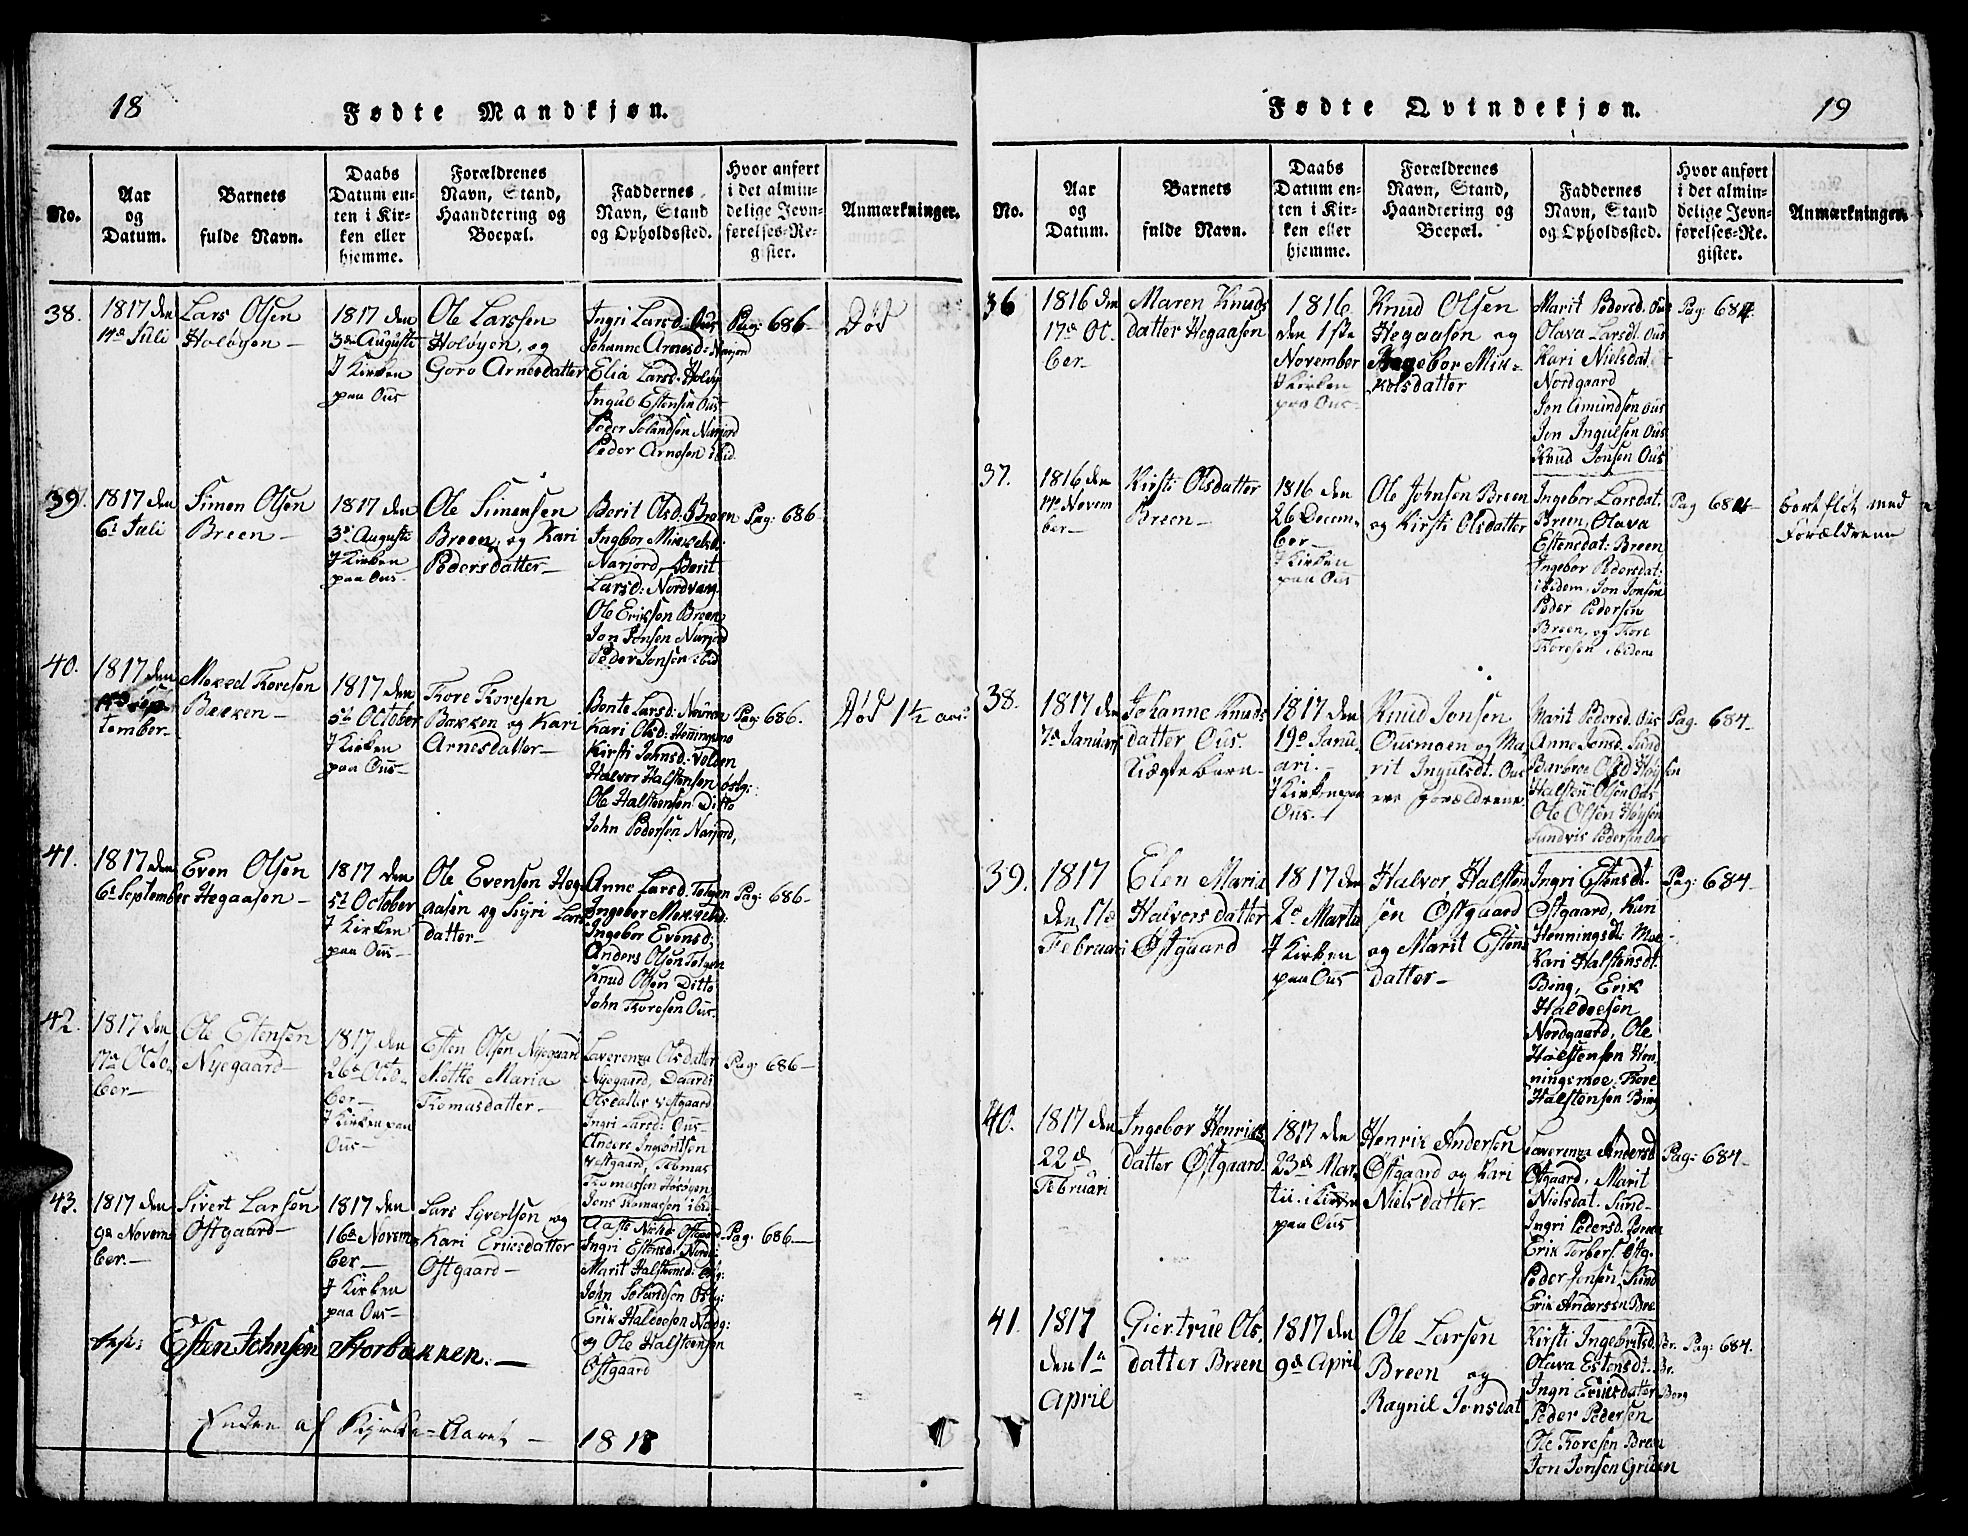 18
Fødte Mandkjøn.
No.
Aar
og
Datum.
Barnets
fulde Navn.
Daabs
Datum en-
ten i Kir-
ken eller
hjemme.
Forældrenes
Navn, Stand,
Haandtering og
Boepæl.
Faddernes
Navn, Stand
og Opholdssted.
Hvor anført
i det almin-
delige Jevn-
førelses-Re-
gister.
Anmærkninger.
38.
1817 den
Juli
Lars Olsen
Holøyen
1817 den
3de Augusti
I Kirken
paa Ous
Ole Larssen
Holøyen, og
Goro Arnesdatter
Ingri Larsd: Ous
Johanne Arnesd: Narjord
Elia Larsd: Holøy
Ingul Estensen Ous
Peder Narjord
Peder Arnesen ibid.
Pag: 686
Død
39.
1817 den
6te Juli
Simen Olsen
Breen
1817 den
3de Augusti
I Kirken
paa Ous
Ole Simensen
Breen, og Kari
Pedersdatter
Berit Olsd: Breen
Ingbor Mikkelsd:
Narjord, Berit
Larsd: Nordvang
Ole Erikssen Breen
Jon Jonsen Narjord
Peder Jonsen ibid
Pag: 686
40.
1817 den
tember
Toresen
Bakken
1817 den
5te October
I Kirken
paa Ous
Tore Toresen
Bakken og Kari
Arnesdatter
Bente Larsd:
Kari Olsd:
Kirsti Johnsd: Volden
Halvor Halstensen Østg:
Ole Halsteensen Ditto
John Pedersen Narjord,
Pag: 686.
Død 1½ aar
41.
1817 den
6te September
Even Olsen
Hegaasen
1817 den
5te October
I Kirken
paa Ous
Ole Evensen Heg
aasen og Siyri Lars
datter
Anne Larsd. Telgen
Ingebor Mikkelsd:
Ingebor Evensd:
Anders Olsen Telgen
Knud Olsen Ditto
John Toresen Ous
Pag: 686
42.
1817 den
17de Octo-
ber
Ole Estensen
Nyegaard
1817 den
26de Octo-
ber
I Kirken paa
Ous
Esten Olsen Nyegaard
Mette Maria
Tomasdatter
Laverenza Olsdatter
Nyegaard,
Olsdatter Østgaard
Ingri Larsd: Ous
Anders Ingbritsen
Østgaard, Tomas
Tomassen
Jens Tomassen ibid.
Pag: 686
43.
1817 den
9de Novem
ber.
Sivert Larsen
Østgaard
1817 den
16de Novem
ber
I Kirken
paa Ous
Lars Syvertsen og
Kari Ericsdatter
Østgaard
Aaste Nielsd: Østgaard
Ingri Estensd: Nordg:
Marit Halsteensd: Østg:
John Østg:
Erik Haldoesen Nordg:
og Ole Halsteensen
Østgaard
Pag: 686
Esten Johnsen Storbækken.
Enden af Kirke-Aaret 1818
19
Fødte Qvindekjøn.
No.
Aar
og
Datum.
Barnets
fulde Navn.
Daabs
Datum en-
ten i Kir-
ken eller
hjemme.
Forældrenes
Navn, Stand,
Haandtering og
Boepæl.
Faddernes
Navn, Stand
og Opholdssted.
Hvor anført
i det almin-
delige Jevn-
førelses-Re-
gister.
Anmærkninger.
36
1816 den
17de Oc-
ber
Maren Knuds
datter Hegaasen
1816
den 1ste
November
I Kirken
paa Ous
Knud Olsen
Hegaasen og
Ingebor Mik-
kelsdatter
Marit Pedersd. Ous
Olava Larsdt. Ous
Kari Nielsdat.
Nordgaard
Jon Amundsen Ous
Jon Ingulsen Ous
Knud Jonsen Ous
Pag: 684
37.
1816 den
Novem
ber
Kirsti Olsdatter
Breen
1816 den
26 Decem-
ber
I Kirken
paa Ous
Ole Johnsen Breen
og Kirsti Olsdatter
Ingebor Larsdat.
Breen, Olava
Estensdat: Breen
Ingebor Pedersdat:
ibidem, Jon Jonsen
Peder Pedersen
Breen, og Tore
Toresen ibidem
Pag 684
bortfløt med
Forældrene
38.
1817 den
7de Januari
Johanne Knuds
datter Ous.
Uægte barn
1817 den
19de Janu-
ari.
I Kirken paa
Ous.
Knud Jonsen
Ousmoen og Ma
rit Ingulsdt. Ous
ere Forældrene
Marit Pedersd. Ous
Anne Jonsd. Sund
Barbroe Olsd Høysen
Halsten Olsen Ous
Ole Olsen Høysen
Pedersen Ous
Pag: 684
39.
1817
den 17de
Februari
Elen Maria
Halvorsdatter
Østgaard
1817 den
2de Martii
I Kirken
paa Ous
Halvor Halsten
sen Østgaard
og Marit Estens
datter
Ingri Estensdt.
Østgaard, Kari
Henningsdt: Moe
Kari Halstensdt.
Bing, Erik
Haldoesen
Nordgaard, Ole
Halstensen Hen-
ningsmoe, Tore
Halstensen Bing
Pag: 684
40.
1817 den
22de
Februari
Ingebor Henriks
datter Østgaard
1817 den
23de Mar-
tii. i Kirken
paa Ous
Henrik Andersen
Østgaard og Kari
Nielsdatter
Laverenza Andersd
Østgaard, Marit
Nielsdat. Sund
Ingri Pedersd.
Erik Torbers. Østg.
Peder Jonsen, Sund
Erik Andersen
Pag: 684
41.
1817
den 1ste
April
Giertrue Ols
datter Breen
1817 den
9de April
Ole Larsen
Breen og
Ragnil Jonsdat
Kirsti Ingebritsd. Br.
Olava Estensdt. Br.
Ingri Eriksdatter Berg
Peder Pedersen
Ole Toresen Breen
Jon Jonsen Gruen
Pag: 684